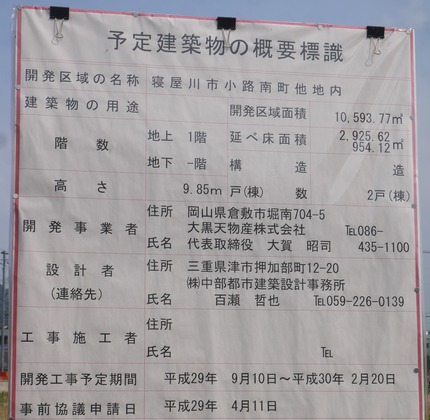 予定建築物の概要標識
開発区域の名称 寝屋川市小路南町他地内
建築物の用途 開発区域面積 10,593.77㎡
階数 地上 1階 延べ床面積 2,925.62 954.12㎡
地下 -階 構造 造
高さ 9.85m 戸(棟)数 2戸(棟)
開発事業者 住所 岡山県倉敷市堀南704-5
大黒天物産株式会社 ℡086-
氏名 代表取締役 大賀 昭司 435-1100
設計者 住所 三重県津市押加部町12-20
(連絡先) ㈱中部都市建築設計事務所
氏名 百瀬 哲也 ℡059-226-0139
工事施工者 住所
氏名 ℡
開発工事予定期間 平成29年 9月10日～平成30年 2月20日
事前協議申請日 平成29年 4月11日